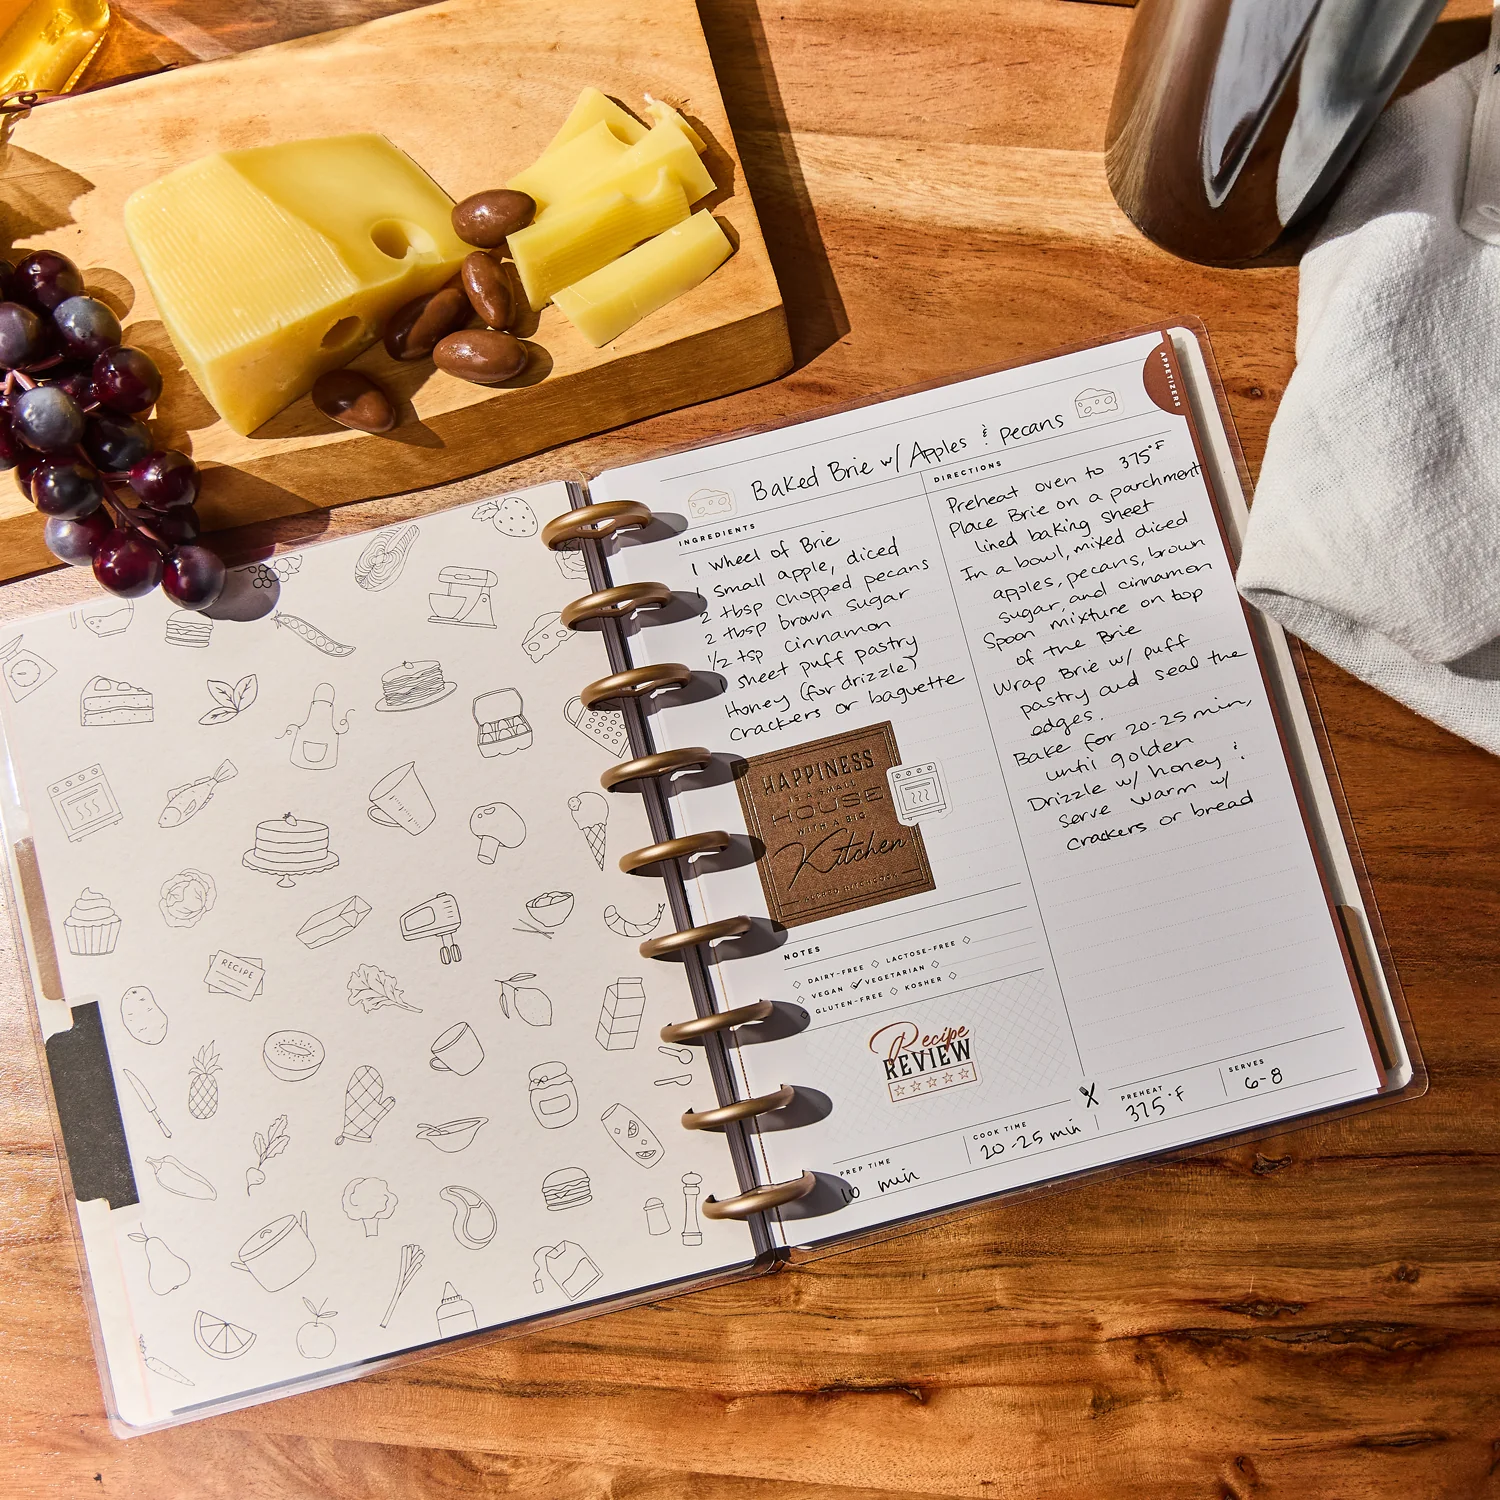 RECIPE
APPETIZERS
Baked Brie w/ Apples & pecans
INGREDIENTS
1 wheel of Brie
1 small apple, diced
2 tbsp chopped pecans
2 tbsp brown sugar
1/2 tsp cinnamon
1 sheet puff pastry
Honey (for drizzle)
crackers or baguette
HAPPINESS
IS A SMALL
HOUSE
WITH A BIG
Kitchen
NOTES
DAIRY-FREE
LACTOSE-FREE
VEGAN
VEGETARIAN
GLUTEN-FREE
KOSHER
Recipe
REVIEW
DIRECTIONS
Preheat oven to 375°F
Place Brie on a parchment
lined baking sheet
In a bowl, mixed diced
apples, pecans, brown
sugar, and cinnamon
Spoon mixture on top
of the Brie
Wrap Brie w/ puff
pastry and seal the
edges.
Bake for 20-25 min,
until golden
Drizzle w/ honey &
serve warm w/
crackers or bread
PREP TIME
10 min
COOK TIME
20-25 min
PREHEAT
375°F
SERVES
6-8